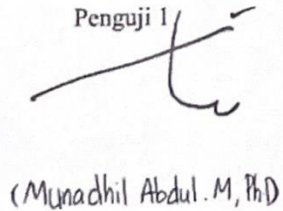 Penguji 1
(Munadhil Abdul . M, PhD